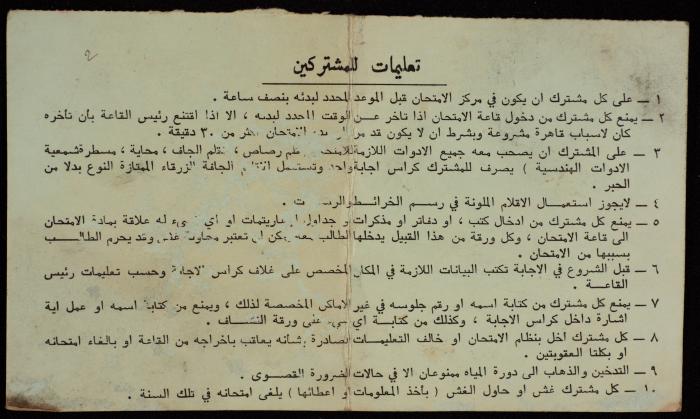 2
تعليمات للمشتركين
١ ــ على كل مشترك ان يكون في مركز الامتحان قبل الموعد المحدد لبدئه بنصف ساعة .
٢ ــ يمنع كل مشترك من دخول قاعة الامتحان اذا تاخر عن الوقت المحدد لبدئه ، الا اذا اقتنع رئيس القاعة بأن تأخره
كان لاسباب قاهرة مشروعة وبشرط ان لا يكون قد مر الامتحان اكثر من ٣٠ دقيقة .
٣ ــ على المشترك ان يصحب معه جميع الادوات اللازمة للامتحان قلم رصاص ، قلم الجاف ، محاية ، مسطرة
الادوات الهندسية ) يصرف للمشترك كراس اجابة واحد وتستعمل الجافة الزرقاء الممتازة النوع بدلا من
الحبر .
٤ ــ لايجوز استعمال الاقلام الملونة في رسم الخرائط
٥ ــ يمنع كل مشترك من ادخال كتب ، او دفاتر او مذكرات او جداول او أي شيء له علاقة بمادة الامتحان
الى قاعة الامتحان ، وكل ورقة من هذا القبيل يدخلها الطالب معه يمكن ان تعتبر محاولة غش وقد يحرم الطالب
بسببها من الامتحان .
٦ ــ قبل الشروع في الاجابة تكتب البيانات اللازمة في المكان المخصص على غلاف كراس الاجابة وحسب تعليمات رئيس
القاعة .
٧ ــ يمنع كل مشترك من كتابة اسمه او رقم جلوسه في غير الاماكن المخصصة لذلك ، ويمنع من كتابة اسمه او عمل اية
اشارة داخل كراس الاجابة ، وكذلك من كتابة اي شيء على ورقة النشاف .
٨ ــ كل مشترك اخل بنظام الامتحان او خالف التعليمات الصادرة بشأنه يعاقب باخراجه من القاعة او بالغاء امتحانه
او بكلتا العقوبتين .
٩ ــ التدخين والذهاب الى دورة المياه ممنوعان الا في حالات الضرورة القصوى .
١٠ ــ كل مشترك غش او حاول الغش ( بأخذ المعلومات او اعطائها ) يلغى امتحانه في تلك السنة .